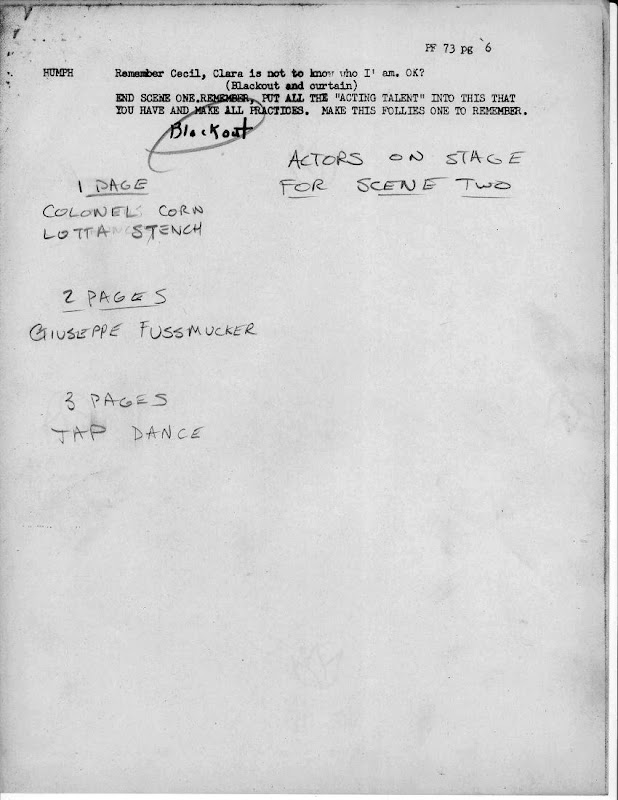 PF 73 pg 6
HUMPH Remember Cecil, Clara is not to know who I' am. OK?
(Blackout and curtain)
END SCENE ONE.REMEMBER, PUT ALL THE "ACTING TALENT" INTO THIS THAT
YOU HAVE AND MAKE ALL PRACTICES. MAKE THIS FOLLIES ONE TO REMEMBER.
Blackout
ACTORS ON STAGE
FOR SCENE TWO
1 PAGE
COLONEL CORN
LOTTA STENCH
2 PAGES
GIUSEPPE FUSSMUCKER
3 PAGES
TAP DANCE